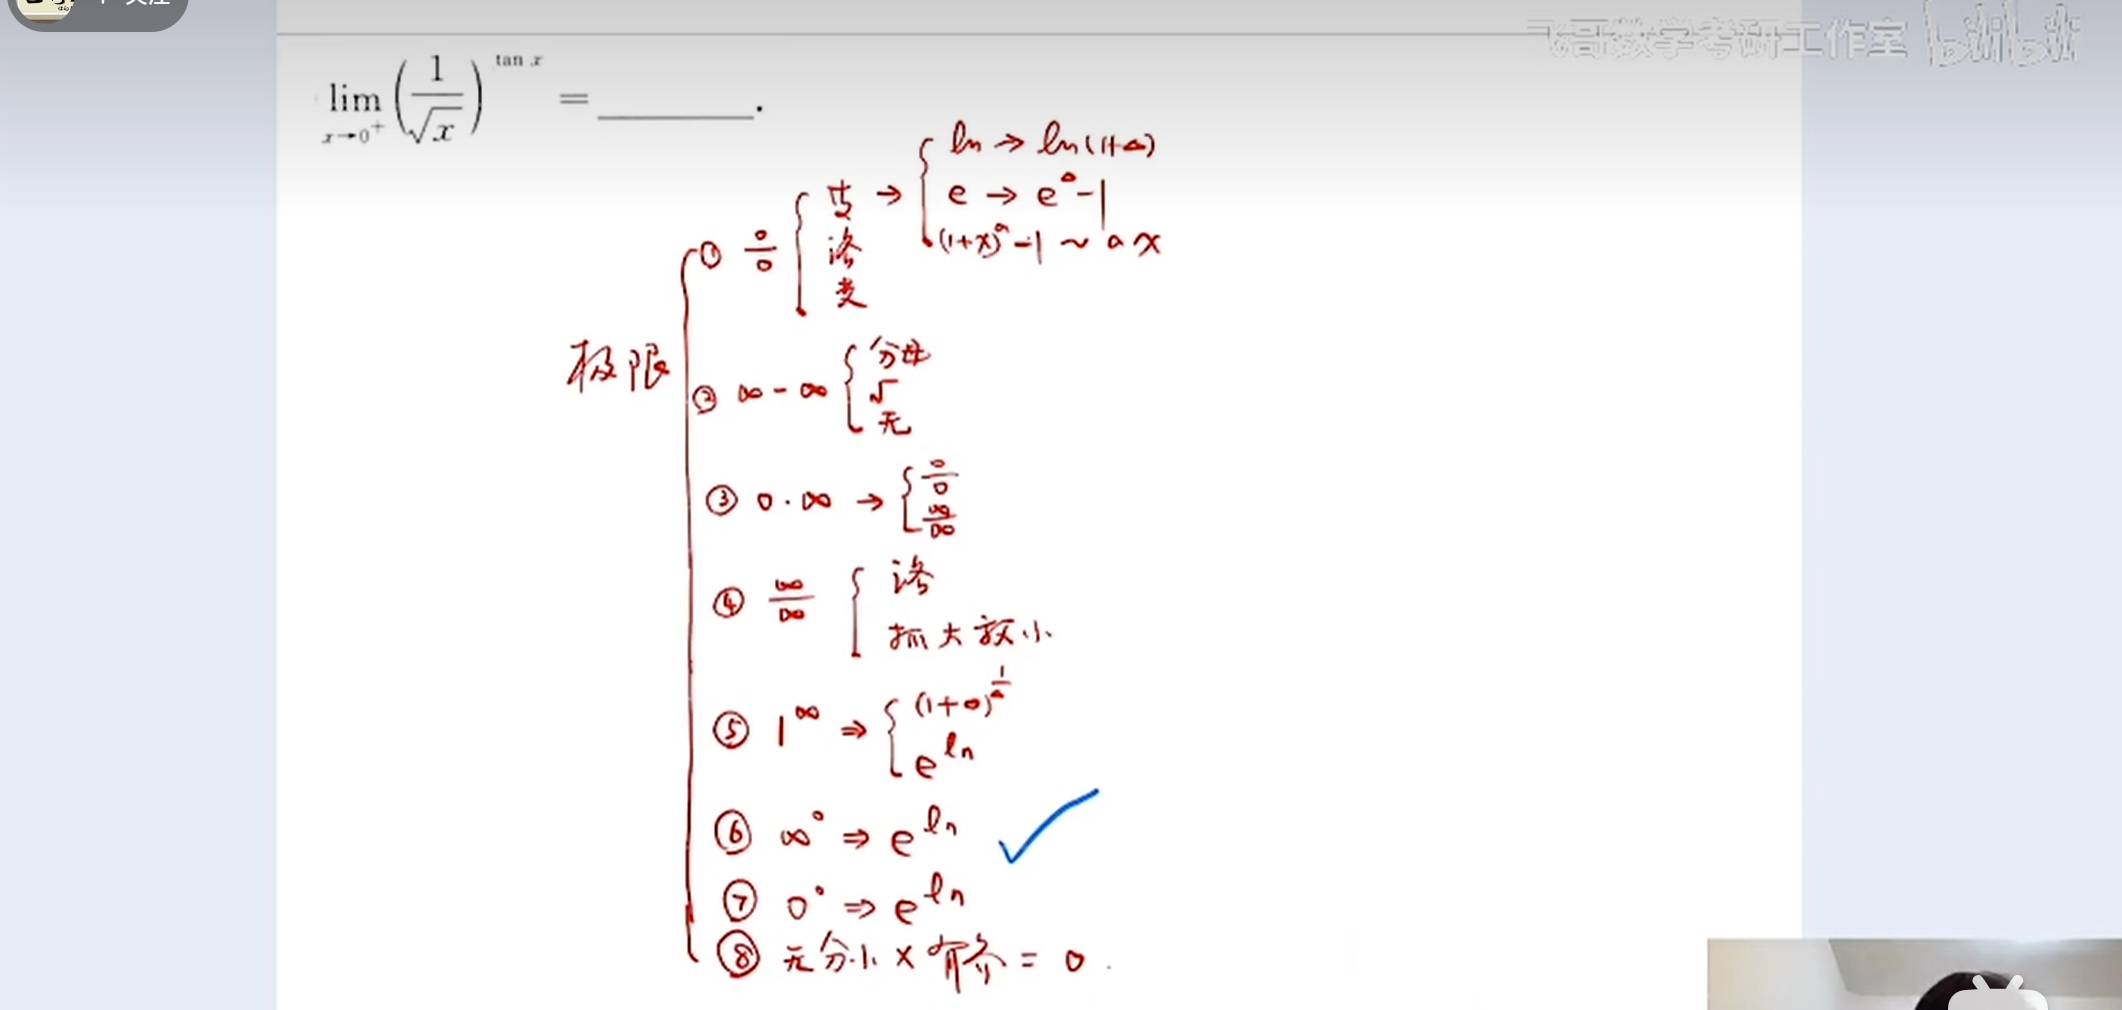 + 关注
飞哥数学考研工作室 bilibili
lim x→0⁺ (1/√x)^tan x = ______.
极限
① 0/0 { 等 → { ln → ln(1+△)
e → e^△-1
(1+x)^a-1 ~ ax
洛
变
② ∞-∞ { 分母
√
无
③ 0·∞ → { 0/0
∞/∞
④ ∞/∞ { 洛
抓大放小
⑤ 1^∞ ⇒ { (1+△)^1/△
e^ln
⑥ ∞^0 ⇒ e^ln ✓
⑦ 0^0 ⇒ e^ln
⑧ 无穷小 × 有界 = 0.